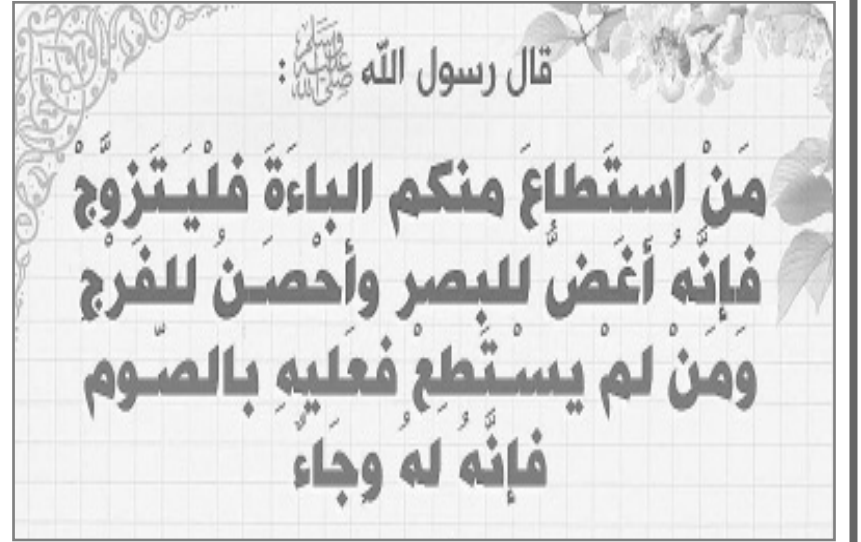 قال رسول الله ﷺ :
مَنْ استَطاعَ منكم الباءَةَ فلْيَتَزوَّجْ
فإنَّهُ أغَضُّ للبصر وأحْصَنُ للفَرْجِ
وَمَنْ لمْ يسْتَطِعْ فعَليهِ بالصّوم
فإنَّهُ لهُ وِجَاءٌ